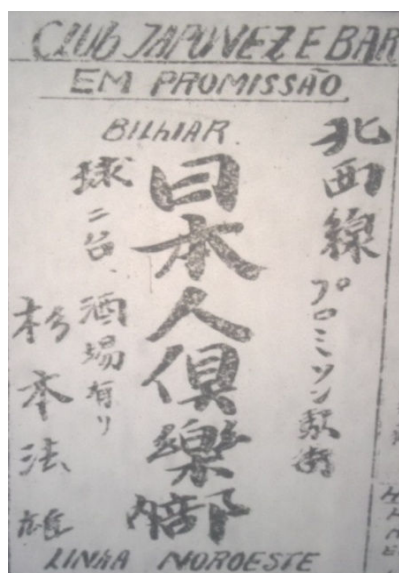 CLUB JAPONEZ E BAR
EM PROMISSÃO
BILHIAR
北西線 プロミツソン駅街
日本人倶樂部
球二台、酒場有リ
杉本法雄
LINHA NOROESTE